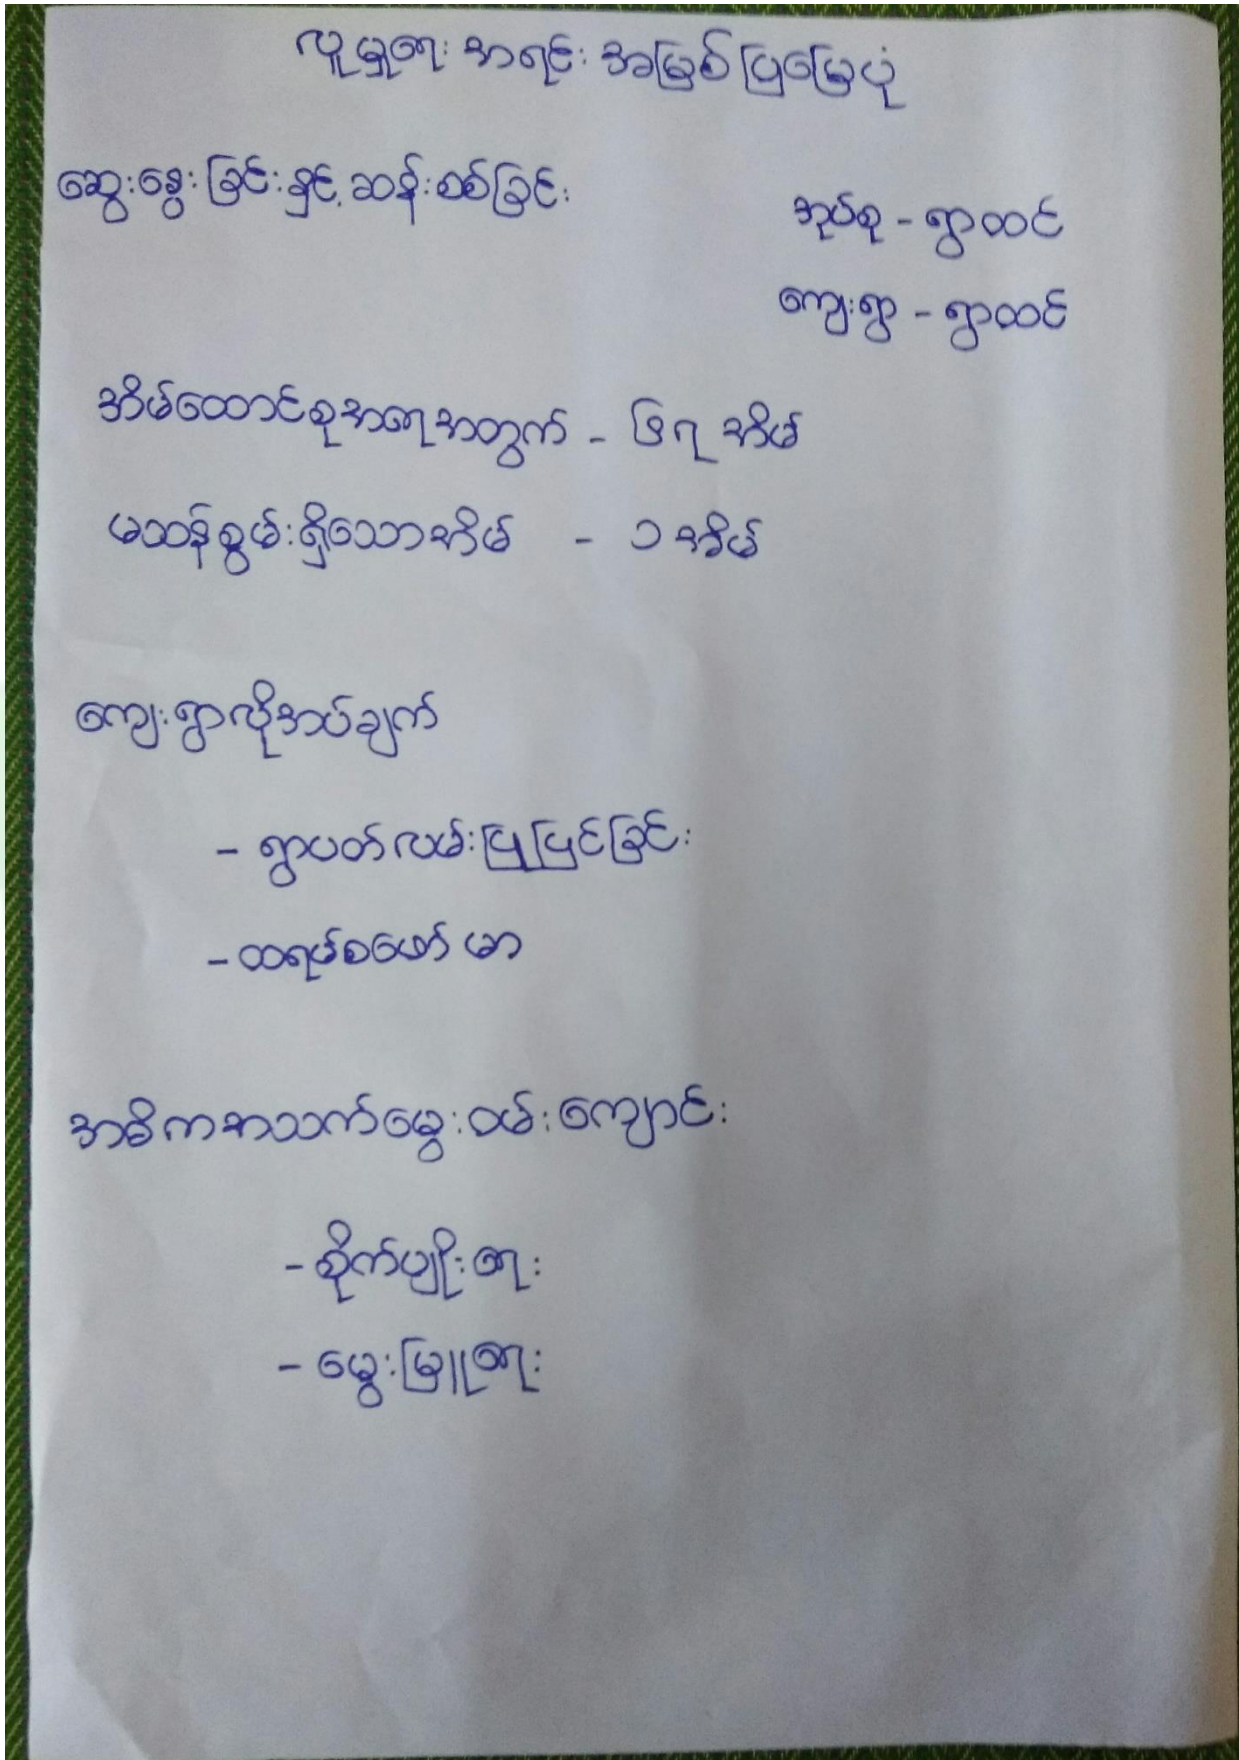 လူမှုရေး အရင်း အမြစ်ပြမြေပုံ
ဆွေးနွေးခြင်းနှင့် ဆန်းစစ်ခြင်း
အုပ်စု - ရွာထင်
ကျေးရွာ - ရွာထင်
အိမ်ထောင်စုအရေအတွက် - ၆၇ အိမ်
မသန်စွမ်းရှိသောအိမ် - ၁ အိမ်
ကျေးရွာလိုအပ်ချက်
- ရွာပတ်လမ်းပြုပြင်ခြင်း
- ထရမ်စဖော်မာ
အဓိကအသက်မွေးဝမ်းကျောင်း
- စိုက်ပျိုးရေး
- မွေးမြူရေး